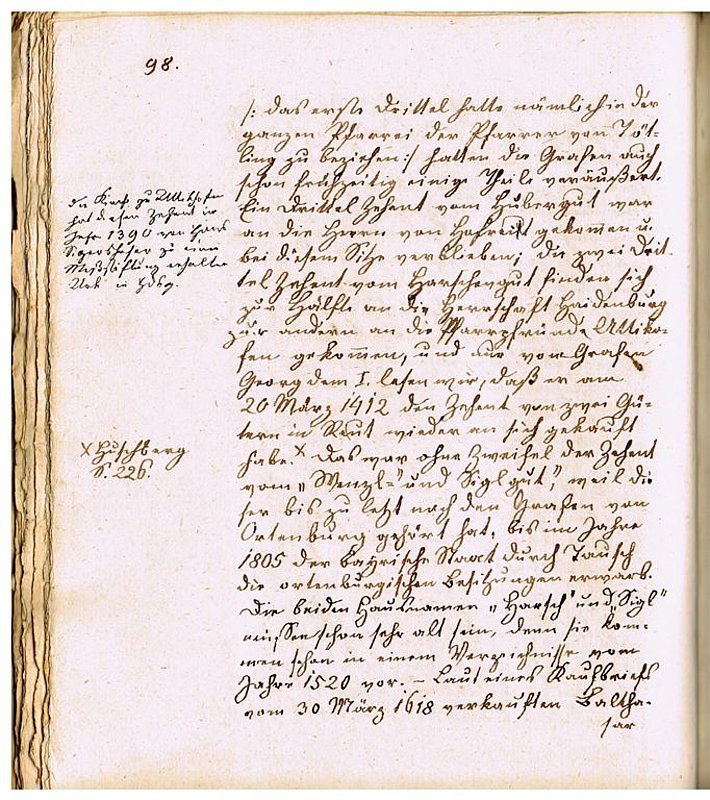 98.
/: das erste Drittel hatte nämlich in der
ganzen Pfarrei der Pfarrer von Töt-
ling zu beziehen :/ hatten die Grafen auch
schon frühzeitig einige Theile veräußert.
Ein Drittel Zehent vom Hubergut war
an die Herrn von Hofreut gekommen u.
bei diesem Sitze verblieben; die zwei Drit-
tel Zehent vom Harschengut finden sich
zur Hälfte an die Herrschaft Haidenburg
zur andern an die Pfarrpfründe Attiko-
fen gekommen, und nur vom Grafen
Georg dem I. lesen wir, daß er am
20 März 1412 den Zehent von zwei Gü-
tern in Reut wieder an sich gekauft
habe.x Das war ohne Zweifel der Zehent
vom „Wenzl=" und Siglgut", weil die
ser bis zu letzt noch den Grafen von
Ortenburg gehört hat, bis im Jahre
1805 der bayrische Staat durch Tausch
die ortenburgischen Besitzungen erwarb.
Die beiden Hausnamen „Harsch" und „Sigl"
müssen schon sehr alt sein, denn sie kom-
men schon in einem Verzeichnisse vom
Jahre 1520 vor. – Laut eines Kaufbriefs
vom 30 März 1618 verkauften Baltha-
sar
die Kirche zu
hat diesen Zehent im
Jahr 1390 von Hans
zu einer
Meßstiftung erhalten
Urk. in
x Huschberg
S. 226.